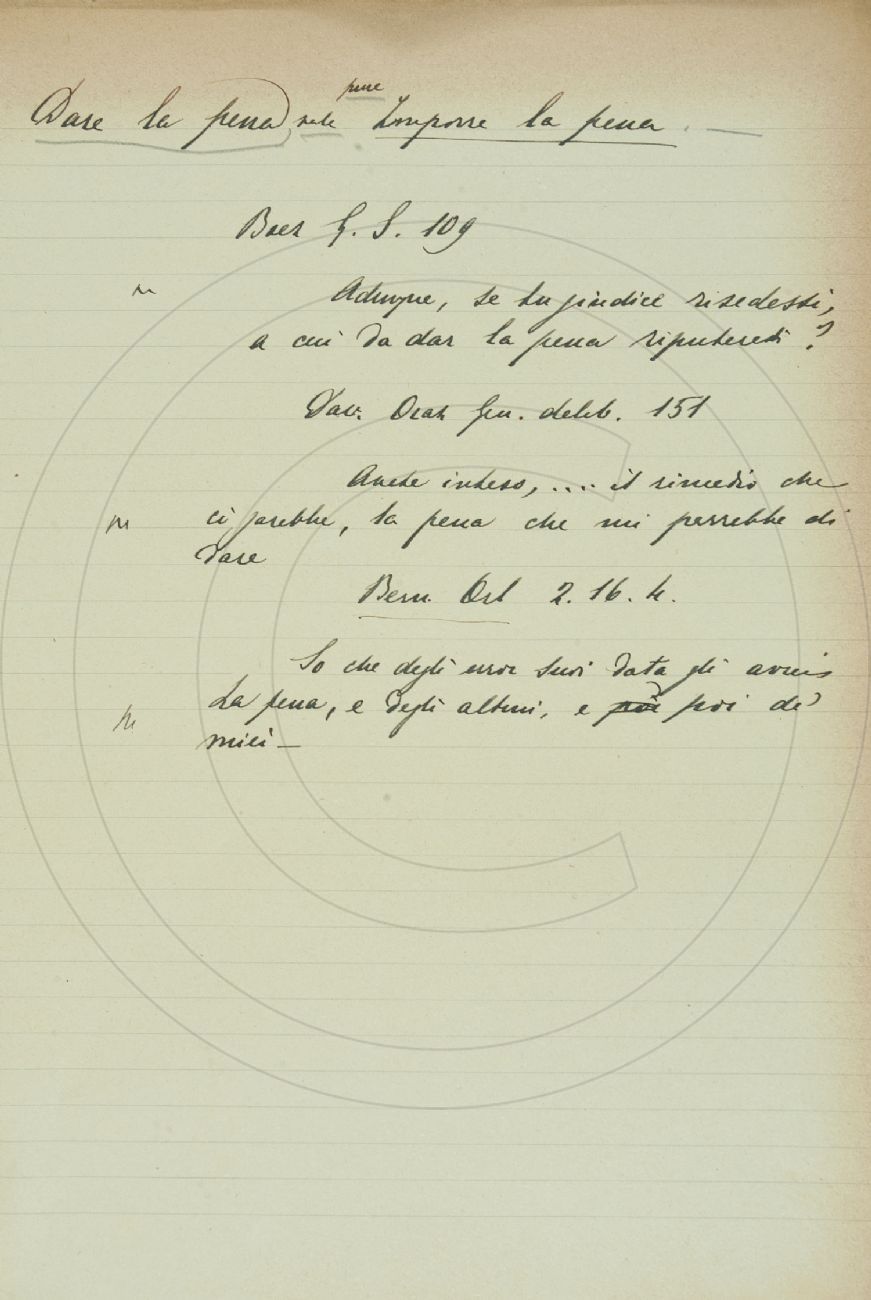 Dare la pena) vale pure Imporre la pena. —
Boez G. S. 109
Adunque, se tu giudice risedessi,
a cui da dar la pena riputeresti?
Dav. Oraz Gen. delib. 151
Avete inteso, .... il rimedio che
ci sarebbe, la pena che mi parrebbe di
dare
Bern. Orl 2. 16. 4.
So che degli error suoi data gli avreis
La pena, e degli altrui, e poi de'
miei —